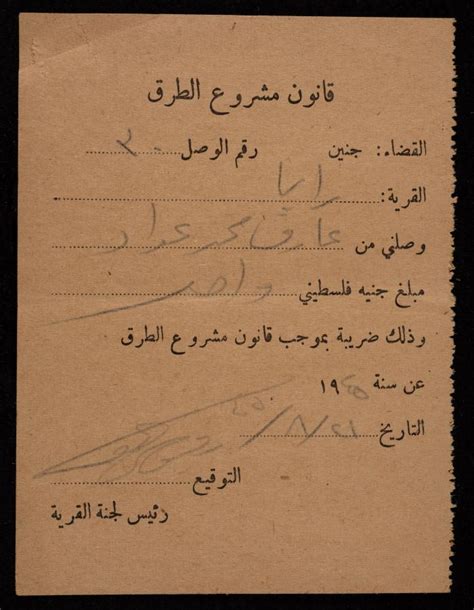 قانون مشروع الطرق
القضاء: جنين رقم الوصل ٣٠
القرية: رابا
وصلني من عارف محمد عواد
مبلغ جنيه فلسطيني واحد
وذلك ضريبة بموجب قانون مشروع الطرق
عن سنة ١٩٤٥
التاريخ ٢١/٨/٤٥
التوقيع
رئيس لجنة القرية